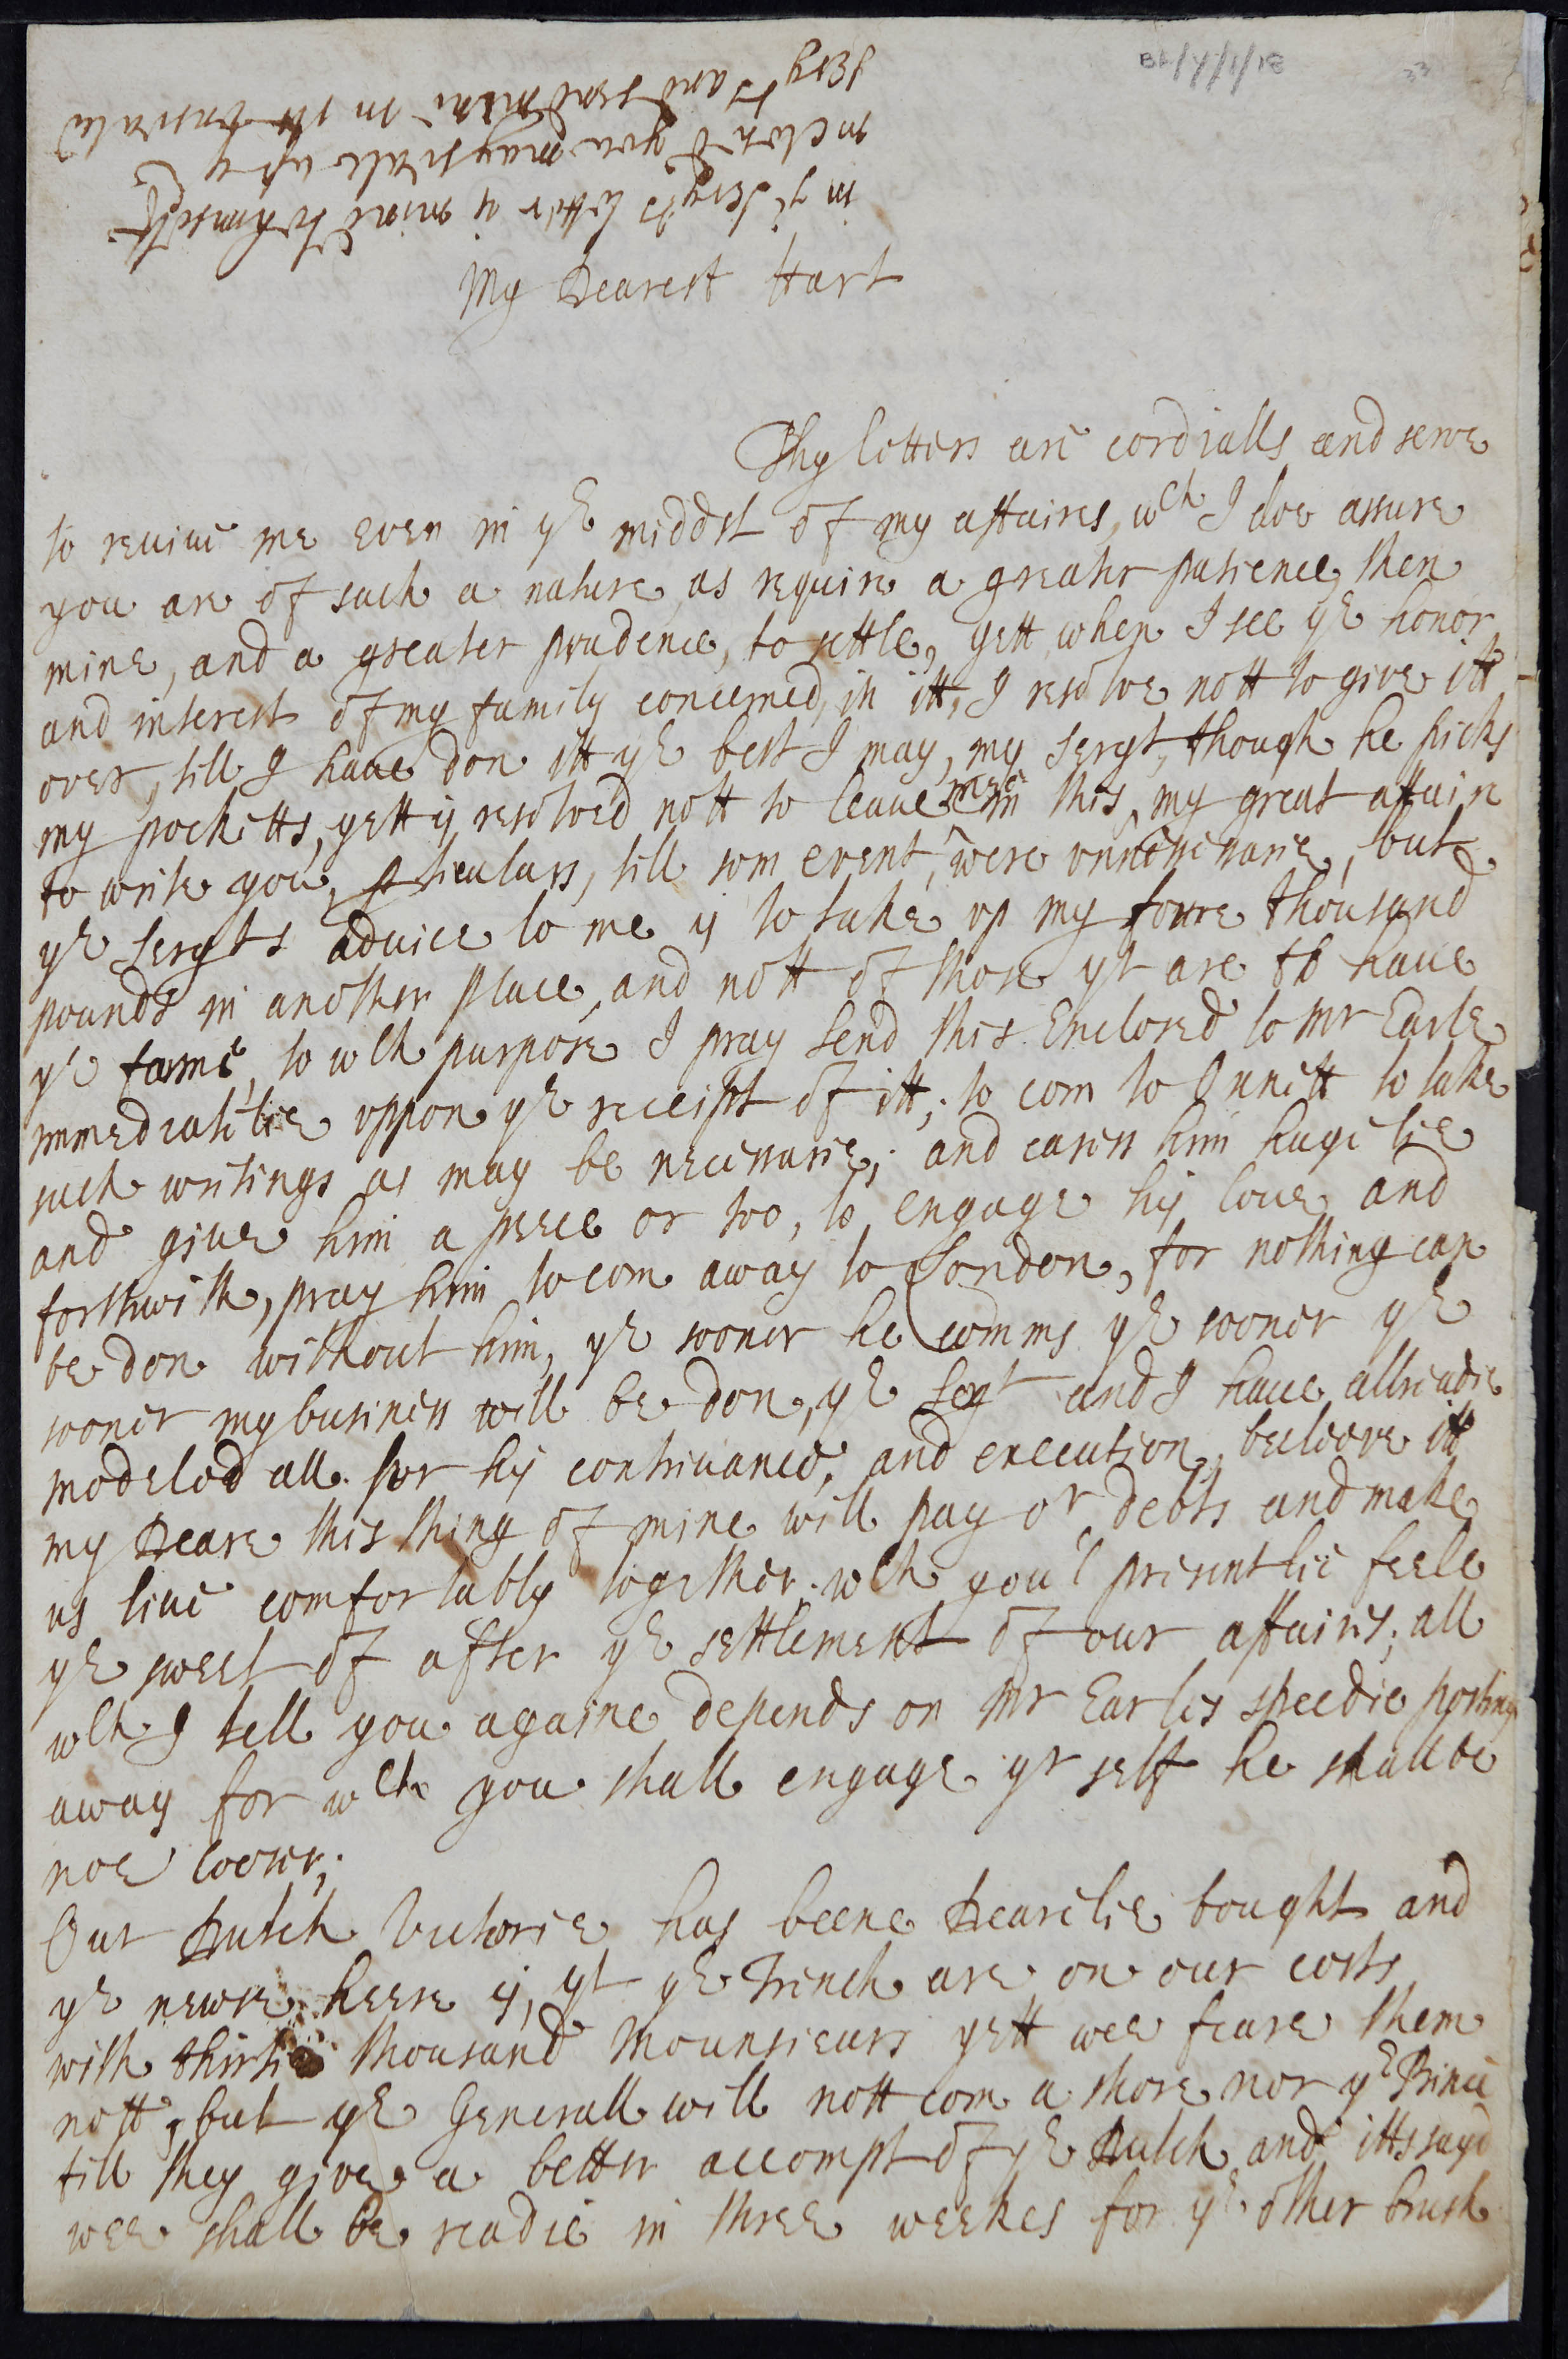 BL/Y/1/18
33
in ye Sergts letter is mine to himselfe
inclos'd you may seale up ye
Sergts and send mine in itt unsealed
My Dearest Hart
Thy letters are cordialls and serve
to reuiue me even in ye middst of my affaires, wch I doe assure
you are of such a nature, as require a greater patience, then
mine, and a greater prudence, to settle, yett when I see ye honor
and interest of my family concerned, in itt, I resolve nott to give itt
over, till I haue don itt ye best I may, my Sergt, though he picks
my pocketts, yett is resolved nott to leaue mee in this my great affaire
to write you, pticulars, till som event, were unnecessarie, but
ye Sergts advice to me is to take up my foure thousand
pounds in another place, and nott of those yt are to haue
ye farme, to wch purpose I pray send this Enclosed to Mr Earle
immediatelie uppon ye receipt of itt; to com to Innett to take
such writings as may be necessarie; and caress him hugelie
and giue him a peece or two, to engage his loue and
forthwith, pray him to com away to London, for nothing can
be don without him, ye sooner he comms ye sooner ye
sooner my business will be don, ye Sergt and I haue allreadie
modeled all for his contriuance, and execution, beeleeve itt
my Deare this thing of mine will pay or debts and make
us liue comfortably together. wch you'l presentlie feele
ye sweet of after ye settlement of our affaires; all
wch I tell you againe depends on Mr Earles speedie posting
away for wch you shall engage yr self he shall be
noe looser;
Our Dutch Victorie has beene Dearelie bought and
ye newse heere is, yt ye French are on our costs
with thirtie thousand Mounsieurs yett wee feare them
nott, but ye Generall will nott com a shore nor ye Prince
till they give a better accompt of ye Dutch and itts sayd
wee shall be readie in three weekes for ye other brush